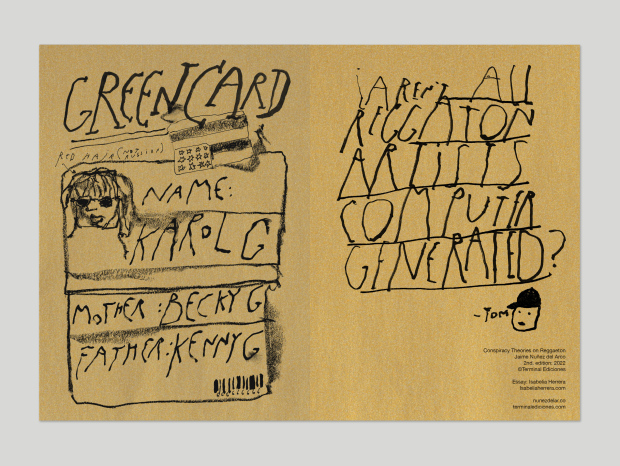 GREENCARD
RED HAIR (NOT
NAME:
KAROL G
MOTHER: BECKY G
FATHER: KENNY G
¿AREN'T ALL
REGGATON
ARTISTS
COMPUTER
GENERATED?
-TOM
Conspiracy Theories on Reggaeton
Jaime Nuñez del Arco
2nd. edition. 2022
©Terminal Ediciones
Essay: Isabelia Herrera
Isabeliaherrera.com
nunezdelar.co
terminalediciones.com